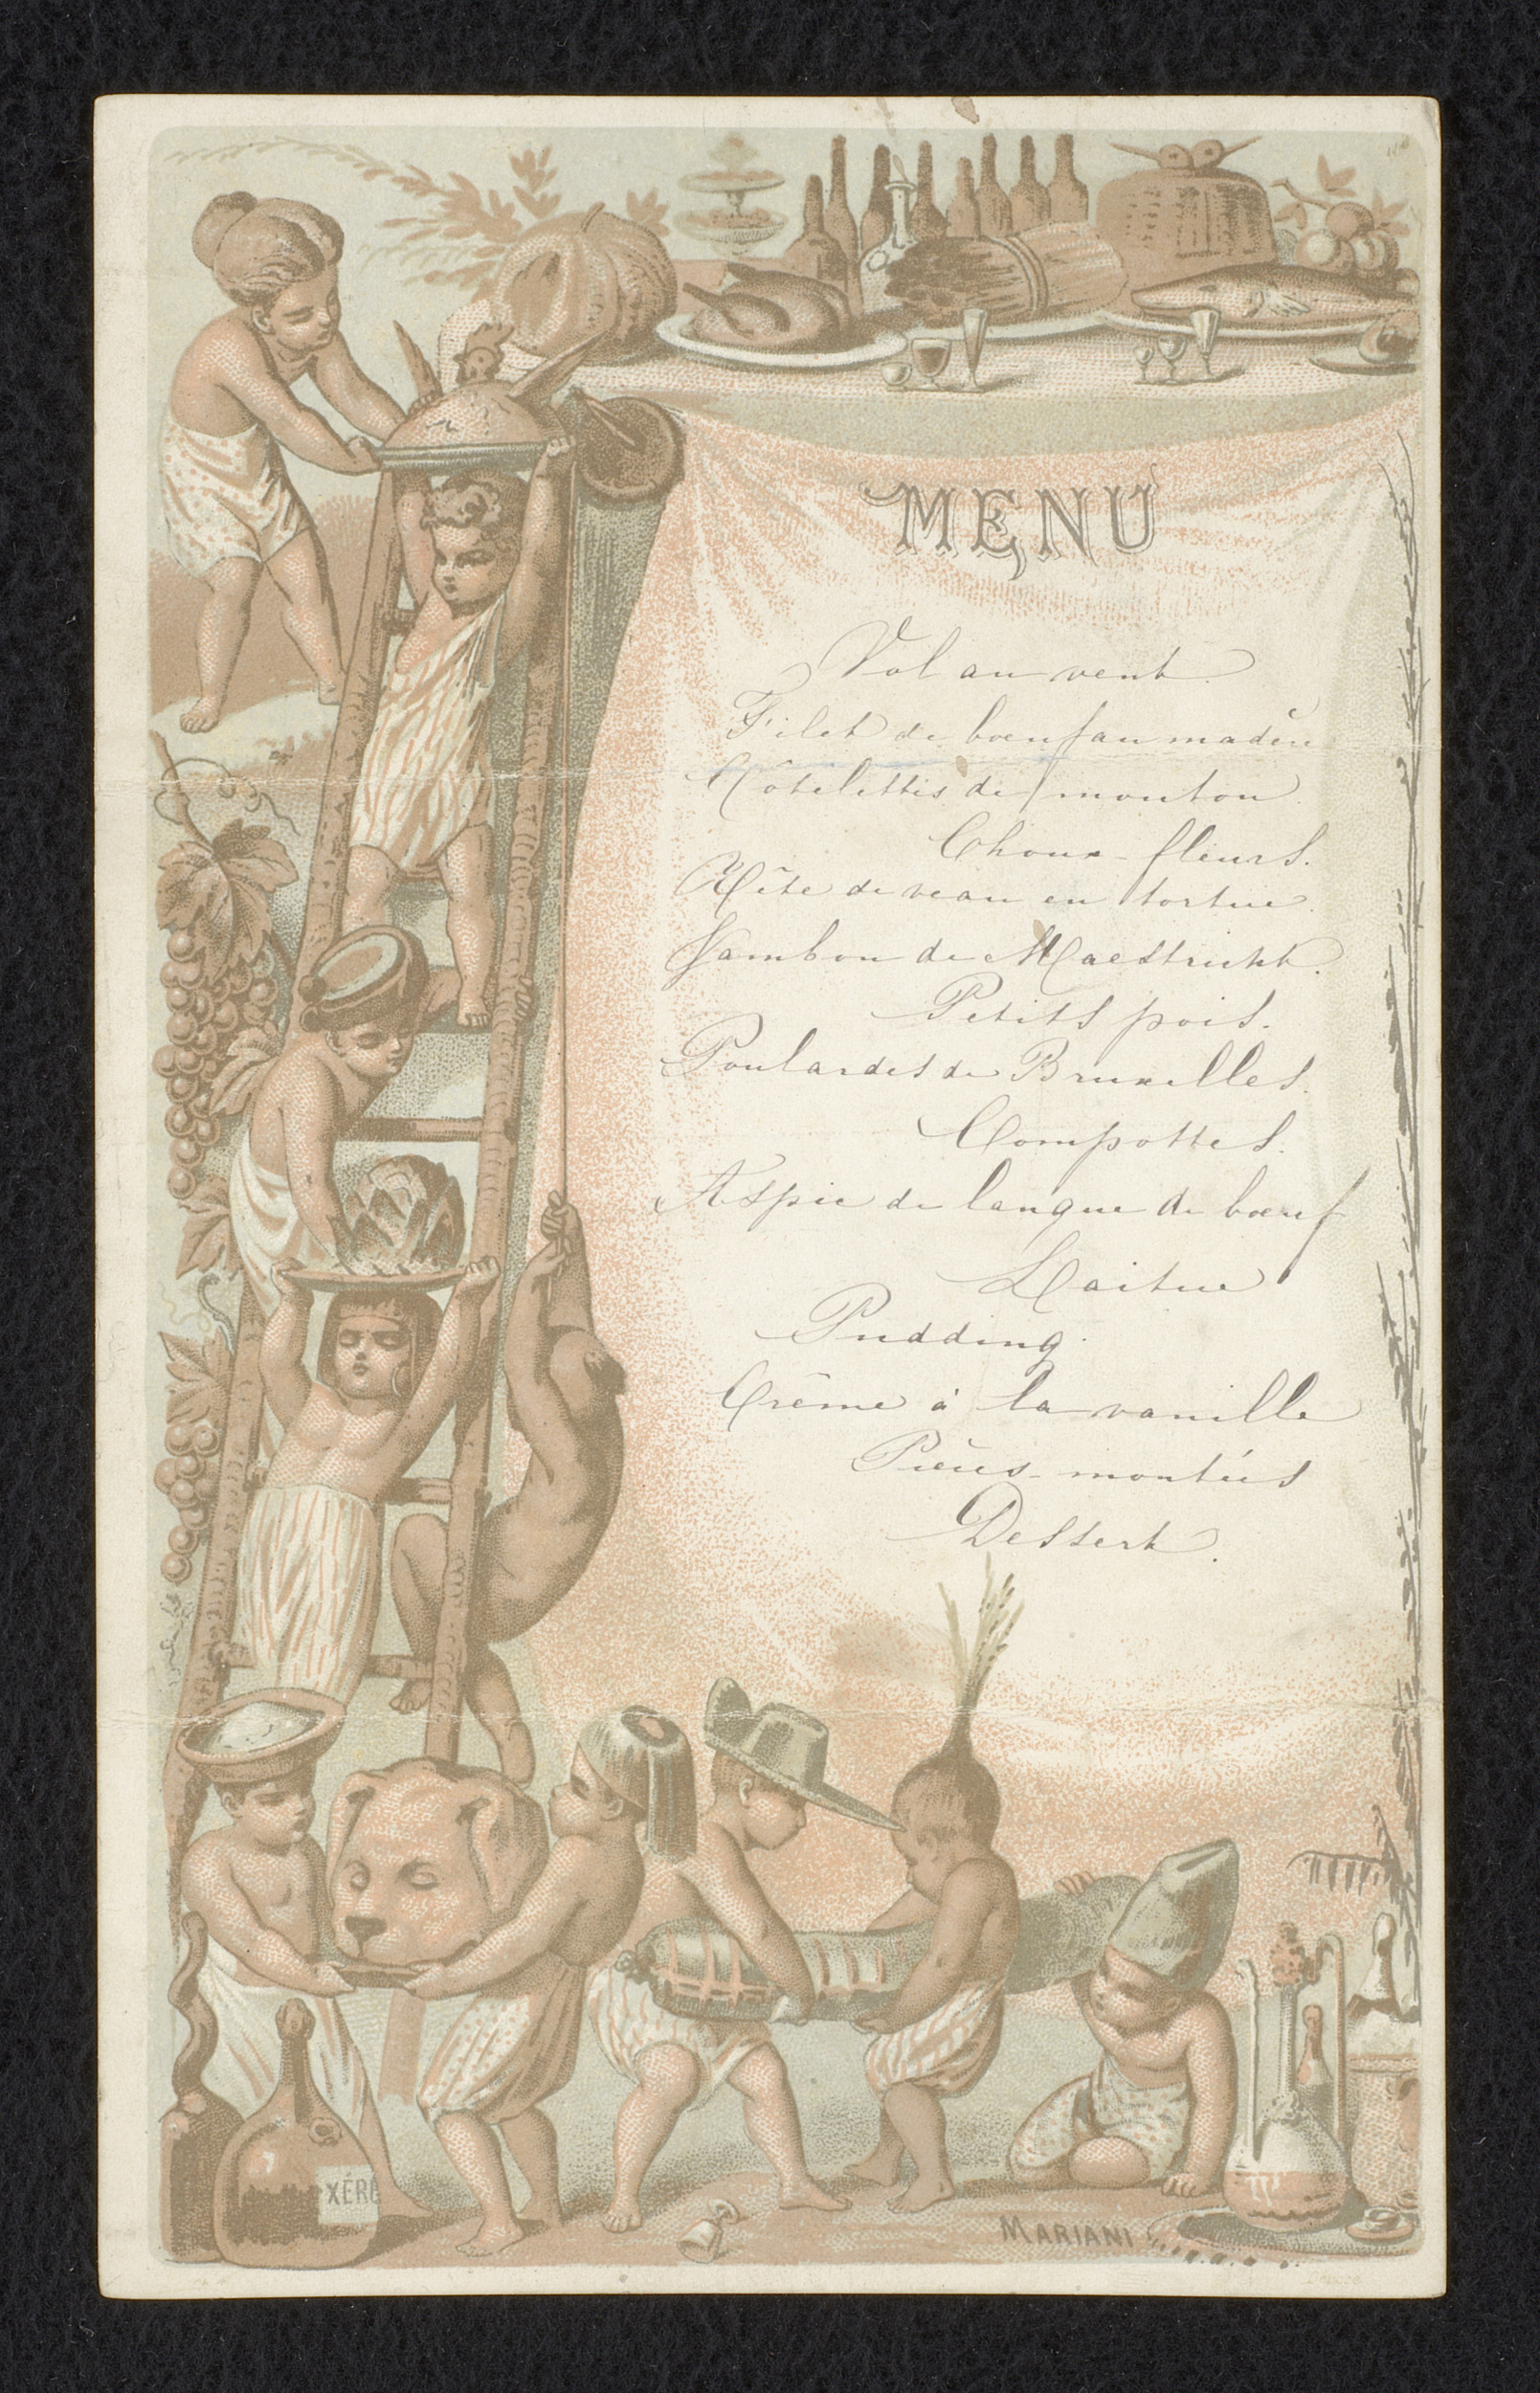 MENU
Vol au vent.
Filet de bœuf au madère
Côtelettes de mouton.
Choux-fleurs.
Tête de veau en tortue.
Jambon de Maestricht.
Petits pois.
Poulardes de Bruxelles.
Compottes.
Aspic de langue de bœuf
Laitue
Pudding.
Crême à la vanille
Pièces-montées
Dessert.
XÉRÈ
MARIANI